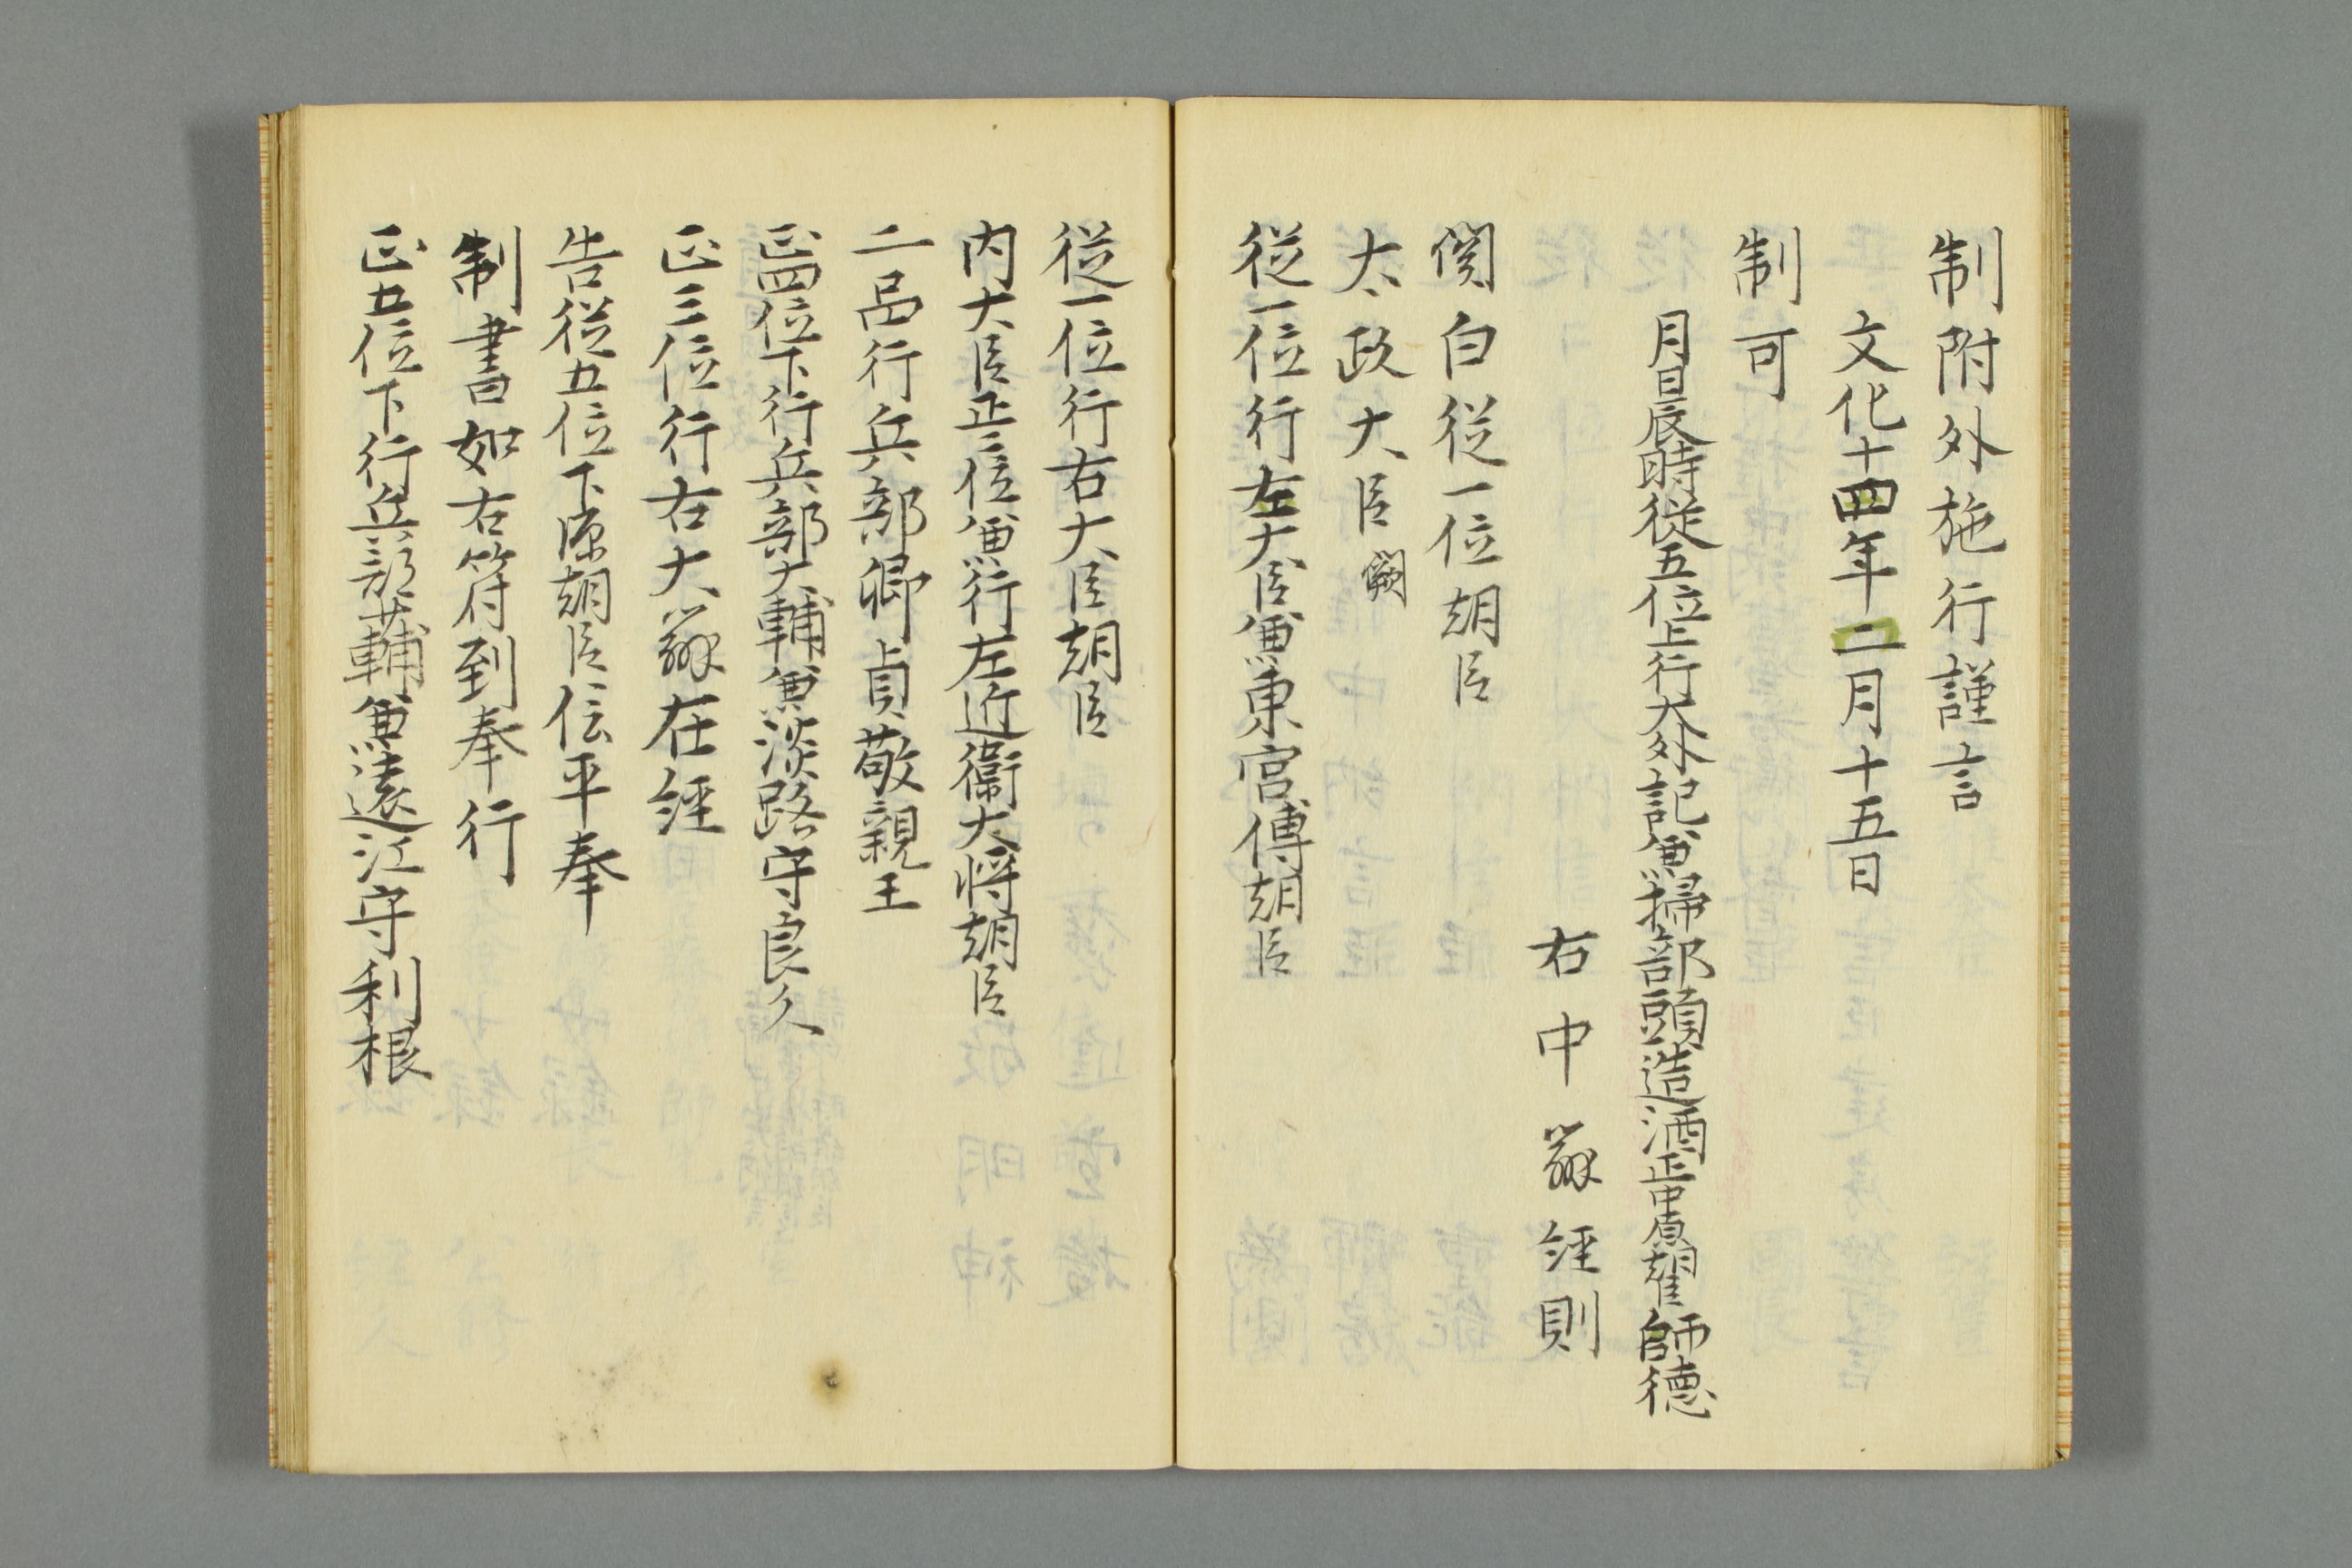 制附外施行謹言
文化十四年二月十五日
制可
月日辰時従五位上行大外記兼掃部頭造酒正中原朝臣師徳
右中辨経則
関白従一位朝臣
太政大臣闕
従一位行左大臣兼東宮傅朝臣
従一位行右大臣朝臣
内大臣正二位兼行左近衛大将朝臣
二品行兵部卿貞敬親王
正四位下行兵部大輔兼淡路守良久
正三位行右大辨在経
告従五位下源朝臣信平奉
制書如右符到奉行
正五位下行兵部権輔兼遠江守利根